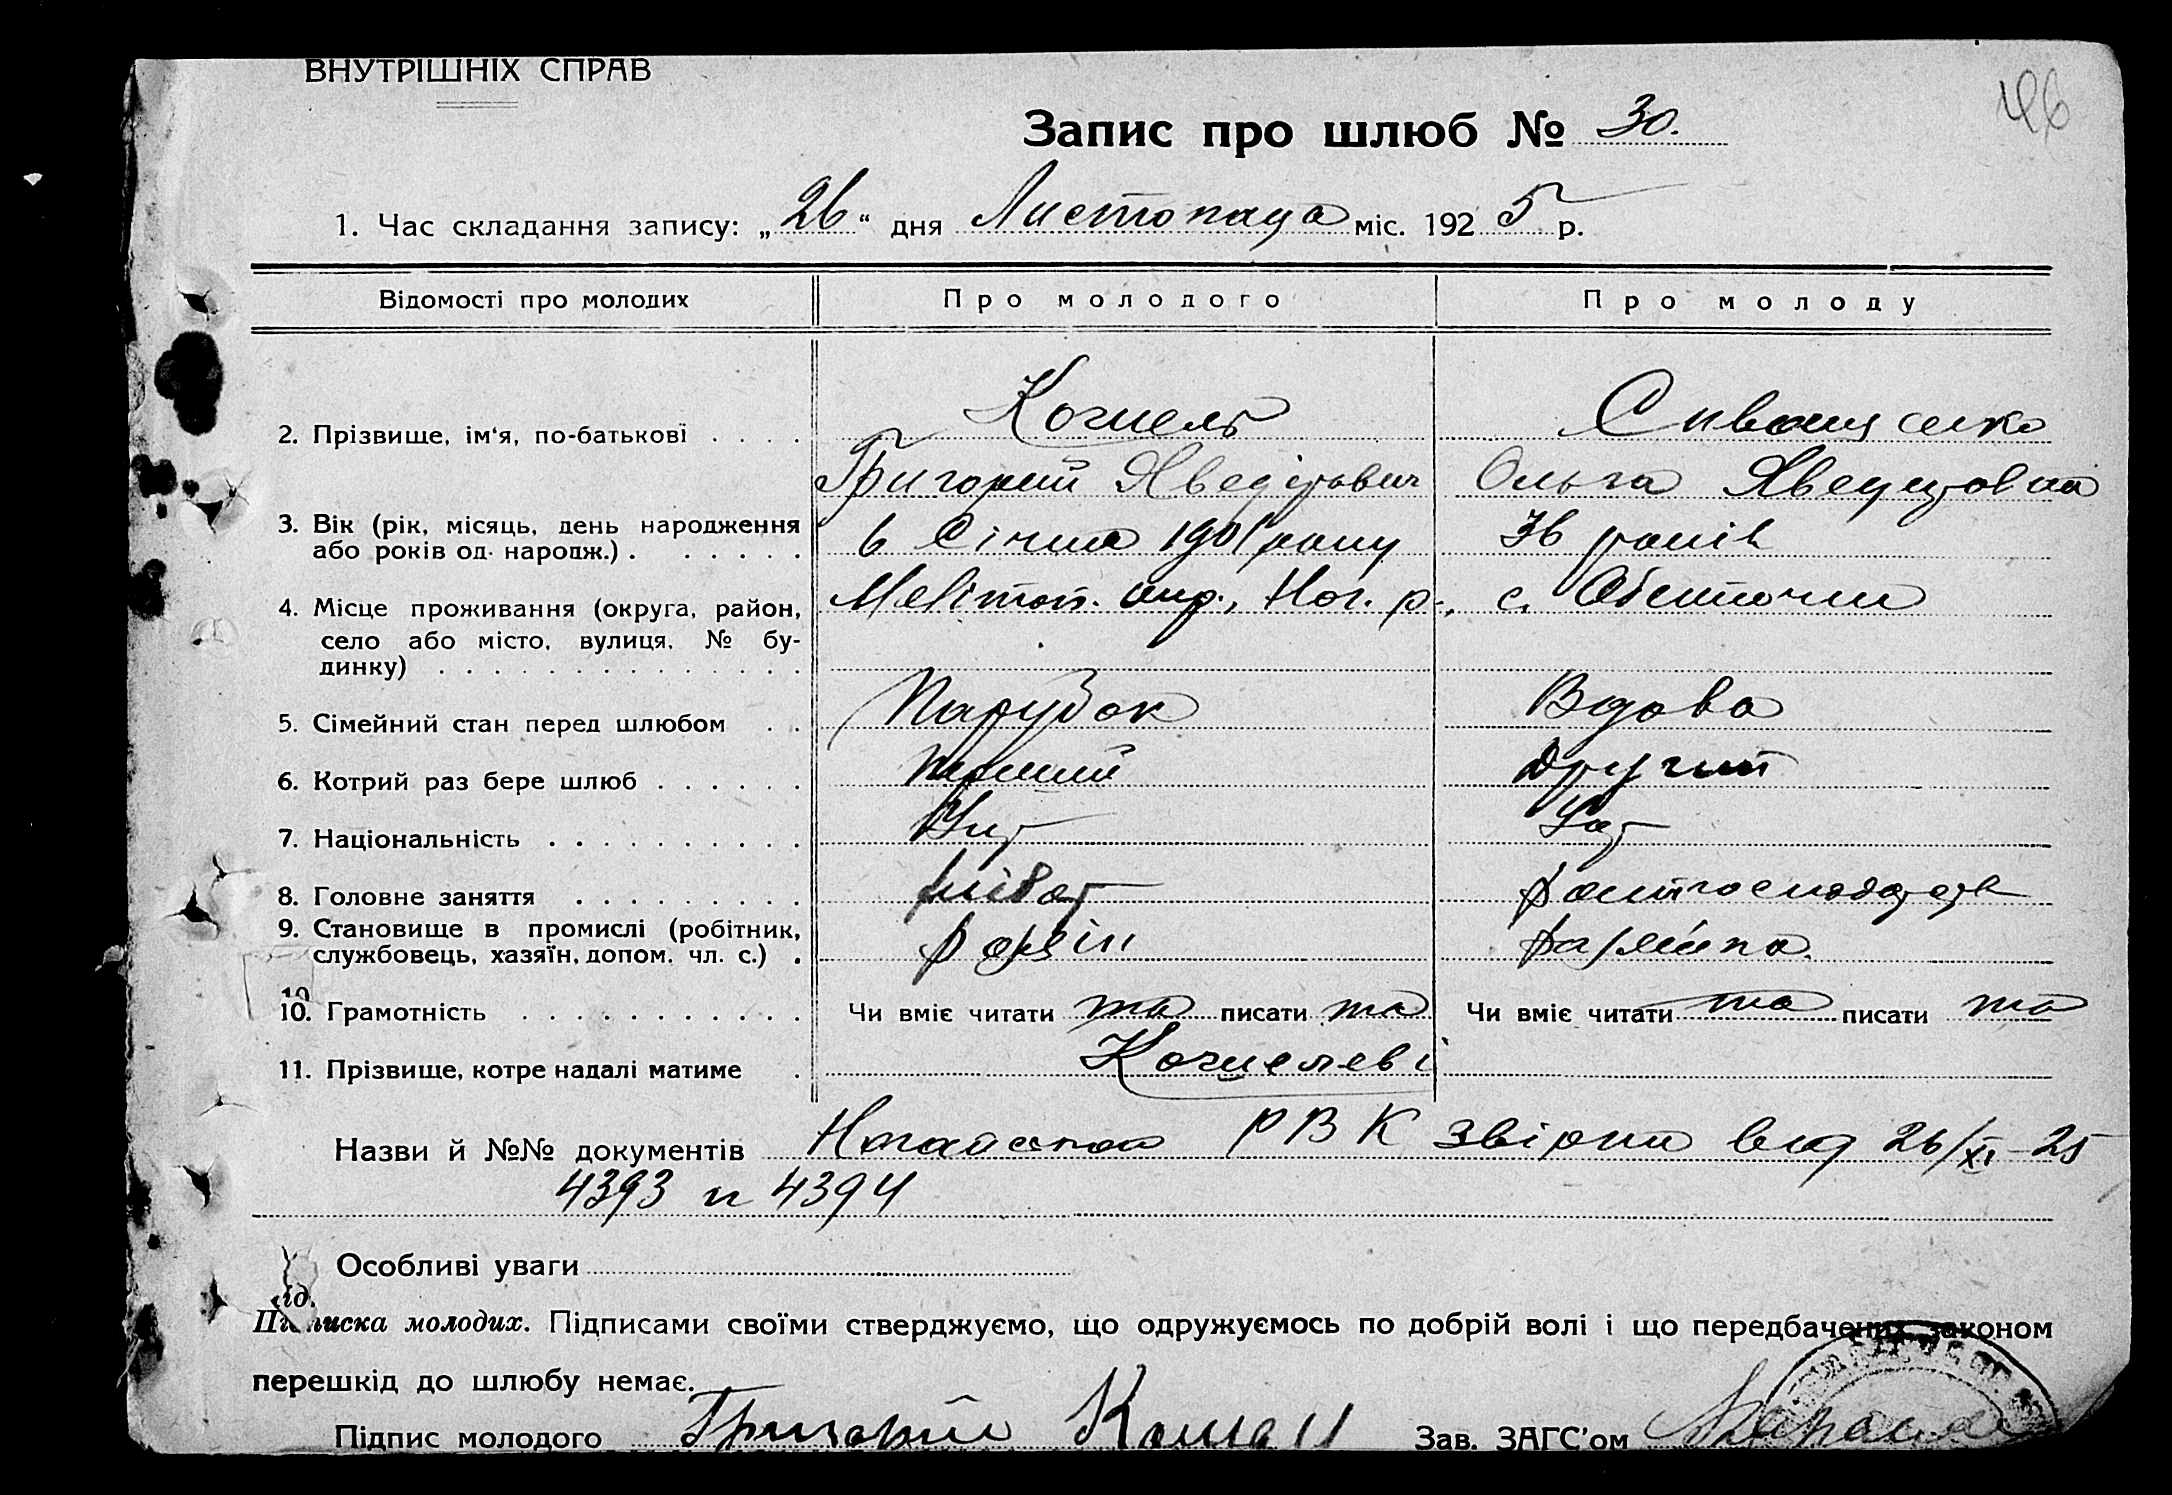 ВНУТРІШНІХ СПРАВ
46
Запис про шлюб № 30.
1. Час складання запису: „26“ дня Листопада міс. 1925 р.
Відомості про молодих Про молодого Про молоду
2. Прізвище, ім'я, по-батькові
Григорий Ольга
3. Вік (рік, місяць, день народження
або років од народж.) 6 Січня 1901 року 36 років
4. Місце проживання (округа, район, Мелітоп. окр., Ног. р., с. Обиточни
село або місто, вулиця, № бу-
динку)
5. Сімейний стан перед шлюбом Парубок Вдова
6. Котрий раз бере шлюб перший другий
7. Національність
8. Головне заняття
9. Становище в промислі (робітник,
службовець, хазяїн, допом. чл. с.)
10
10. Грамотність Чи вміє читати та писати та Чи вміє читати та писати та
11. Прізвище, котре надалі матиме
Назви й №№ документів РВК звірки від 26/XI-25
4393 и 4394
Особливі уваги
Підписка молодих. Підписами своїми стверджуємо, що одружуємось по добрій волі і що передбачених законом
перешкід до шлюбу немає.
Підпис молодого Григорий Зав. ЗАГС'ом